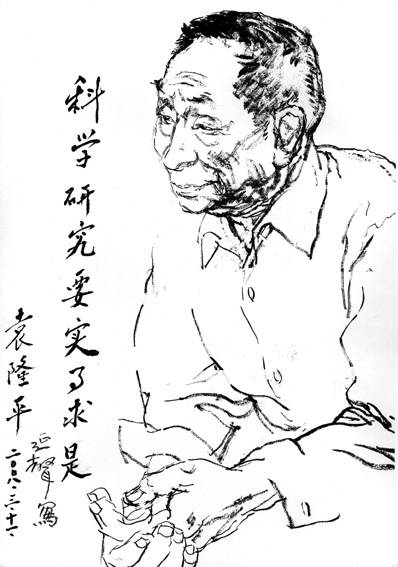 科学研究要实事求是
袁隆平
延声写
二〇〇八·三·十一·